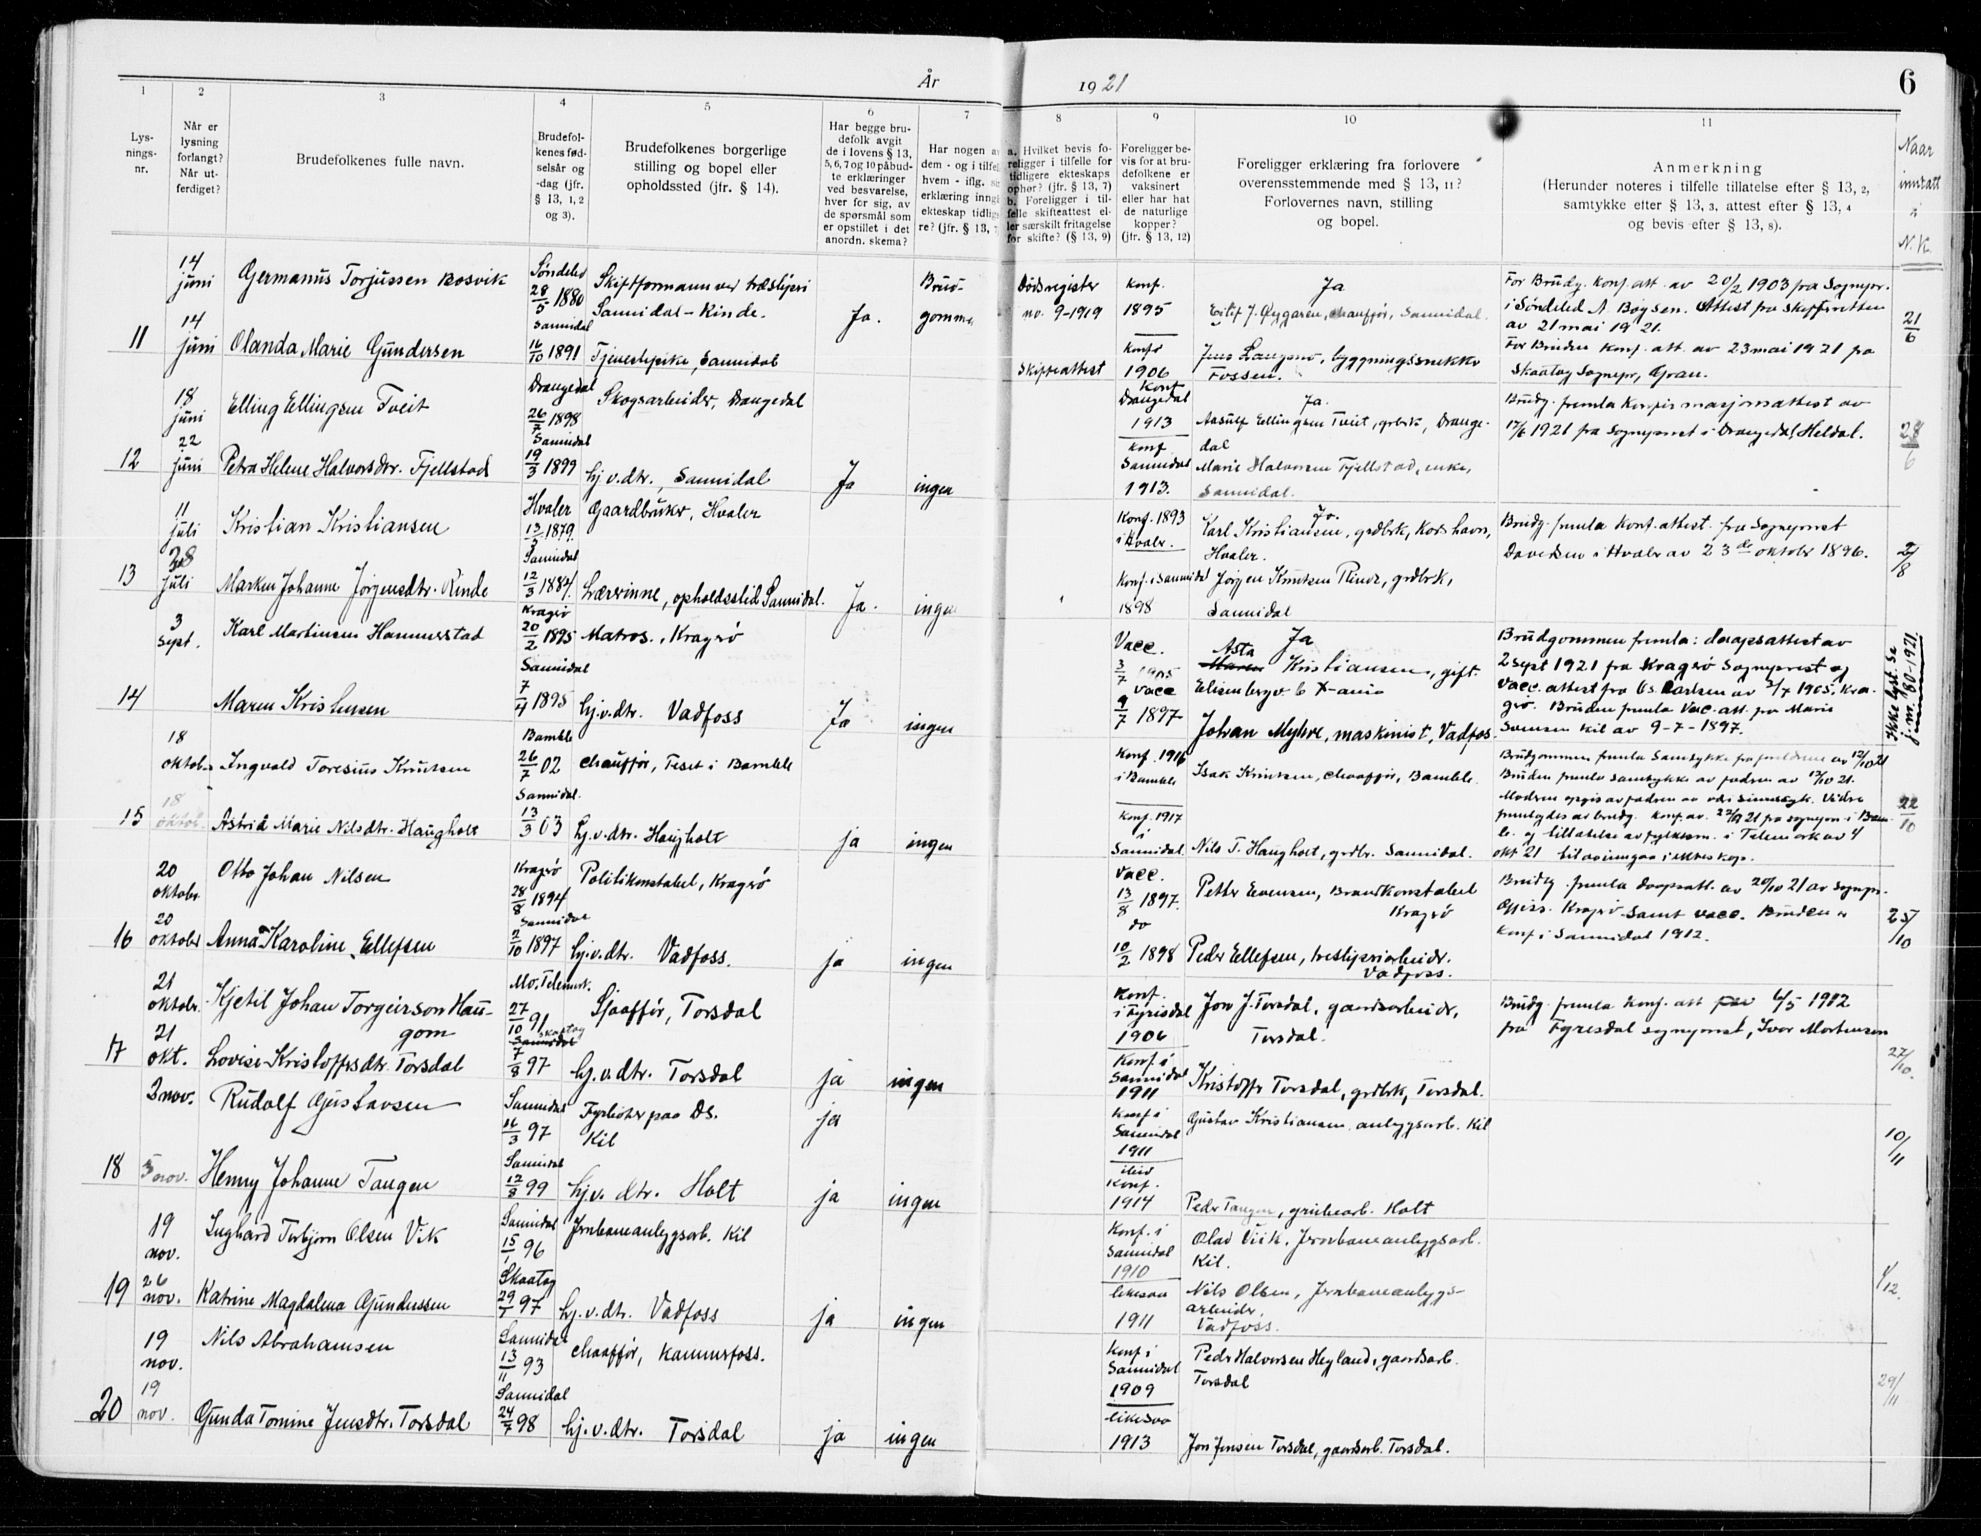 År 1921
6
1 2 3 4 5 6 7 8 9 10 11
Lys-
nings-
nr.
Når er
lysning
forlangt?
Når ut-
ferdiget?
Brudefolkenes fulle navn.
Brudefol-
kenes fød-
selsår og
-dag (jfr.
§ 13, 1, 2
og 3).
Brudefolkenes borgerlige
stilling og bopel eller
opholdssted (jfr. § 14).
Har begge bru-
defolk avgit
de i lovens § 13,
5, 6, 7 og 10 påbud-
te erklæringer
ved besvarelse,
hver for sig, av
de spørsmål som
er opstillet i det
anordn. skema?
Har nogen a
dem - og i tilfel
hvem - iflg.
erklæring inng
ekteskap tidlig
re? (jfr. § 13,
a. Hvilket bevis fo-
religger i tilfelle for
tidligere ekteskaps
ophør? (jfr. § 13, 7)
b. Foreligger i til-
felle skifteattest el-
ler særskilt fritagelse
for skifte? (§ 13, 9)
Foreligger be-
vis for at bru-
defolkene er
vaksinert
eller har hat
de naturlige
kopper?
(jfr. § 13, 12)
Foreligger erklæring fra forlovere
overensstemmende med § 13, 11?
Forlovernes navn, stilling
og bopel.
Anmerkning
(Herunder noteres i tilfelle tillatelse efter § 13, 2,
samtykke efter § 13, 3, attest efter § 13, 4
og bevis efter § 13, 8).
Naar
inntatt
i
N.K.
14 juni Germanus Torjussen Bosvik Søndeled 28/5 1880 Skiftformann ved træsliperi Sannidal - Kinde. Ja. Brud-gomme Dødsregister no. 9-1919 Konf. 1895 Ja
Eilif J. Øygaren, chauffør, Sannidal.
For Brudg. Konf. att. av 20/2 1903 fra Sognepr.
i Søndeled A Boysen. Attest fra skifteretten
av 21 mai 1921.
11 14 juni Olanda Marie Gundersen Sannidal 16/10 1891 Tjenestepike, Sannidal Skifteattest Konf 1906 Jens Langmo, byggningssnekker Fossen. 21/6
For Bruden Konf. att. av 23 mai 1921 fra
Skaatøy Sognepr, Gran.
18 juni Elling Ellingsen Tveit Drangedal 26/7 1898 Skogsarbeider, Drangedal Konf Drangedal 1913 Ja.
Aasulf Ellingsen Tveit, grbrk, Drange-
dal
Brudg. fremla Konfirmasjonsattest av
17/6 1921 fra Sogneprest i Drangedal Heldal.
12 22 juni Petra Helene Halvorsdtr. Fjellstad Sannidal 19/3 1899 hj.v.dtr., Sannidal Ja ingen Konf Sannidal 1913. Marie Halvorsen Fjellstad, enke,
Sannidal. 28/6
11 juli Kristian Kristiansen Hvaler 13/3 1879. Gaardbruker, Hvaler Konf. 1893 i Hvaler. Ja.
Karl Kristiansen, grdbrk, Korshavn,
Hvaler.
Brudg. fremla Konf. attest fra Sogneprest
Davidsen i Hvaler av 23de oktober 1896.
13 28 juli Maren Johanne Jørgensdtr. Rinde Sannidal 12/3 1884. Lærerinne, opholdssted Sannidal. Ja. ingen Konf. i Sannidal 1898 Jørgen Knutsen Rinde, grdbrk,
Sannidal 2/8
3 sept. Karl Martinsen Hammerstad Kragerø 20/2 1895 Matros., Kragerø Vacc. 3/7 1905 Ja
Asta
Maren Kristiansen, gift.
Elisenbergv. 6 X-ania
Brudgommen fremla: daapsattest av
2 sept 1921 fra Kragerø Sogneprest og
Vacc. attest fra Cs. Carlsen av 3/7 1905, Kra-
gerø. Bruden fremla Vac. att. fra Marie
Svensen Kil av 9-7-1897.
14 Maren Kristensen Sannidal 7/4 1895 hj.v.dtr. Vadfoss Ja ingen Vacc 9/7 1897 Johan Myhre, maskinist, Vadfos
Ikke lyst. Se
j.nr. 80-1921.
18 oktober Ingvald Toresius Knutsen Bamble 26/7 02 Chauffør, Feset i Bamble Konf. 1916 i Bamble Isak Knutsen, Chauffør, Bamble.
Brudgommen fremla Samtykke fra foreldrene av 12/10 21
Bruden fremla samtykke av fadren av 12/10 21.
Modren opgis av fadren aa være sinnssyk. Videre
15 18 oktob. Astrid Marie Nilsdtr. Haugholt Sannidal. 13/3 03 hj.v.dtr. Haugholt ja ingen Konf. 1917 i Sannidal Nils T. Haugholt, grdbr. Sannidal. 22/10
okt 21 til aa inngaa i ekteskap.
20 oktober Otto Johan Nilsen Kragerø 28/8 1894 Politikonstabel, Kragerø Vacc. 13/8 1897. Petter Evensen, Brandkonstabel
Kragerø
Brudg. fremla daapsatt. av 20/10 21 av Sognepr.
Offiss. Kragerø samt vacc. Bruden er
Konf. i Sannidal 1912.
16 20 oktober Anna Karoline Ellefsen Sannidal 2/10 1897 hj.v.dtr. Vadfoss. ja ingen do 10/2 1898 Peder Ellefsen, tresliperiarbeider.
Vadfoss. 25/10
21 oktober Kjetil Johan Torgeirson Hau-
gom Mo. Telemark. 27/10 91 Sjaaffør, Torsdal Konf. i Fyrisdal 1906 Jon J. Torsdal, gaardsarbeider,
Torsdal.
Brudg. fremla Konf. att fra 6/5 1912
fra Fyresdal sogneprest, Ivar Mortensen
17 21 okt. Lovise Kristoffersdtr. Torsdal Skaatøy Sannidal 7/8 97 hj.v.dtr. Torsdal ja ingen Konf. i Sannidal 1911 Kristoffer Torsdal, grdbrk, Torsdal. 27/10.
3 nov. Rudolf Gustavsen Sannidal 16/3 97 Fyrbøter paa Ds.
Kil ja Konf i Sannidal 1911 Gustav Kristiansen anleggsarb. Kil
18 5 nov. Henny Johanne Tangen Sannidal 12/8 99 hj.v.dtr. Holt ja ingen Konf. 1914 Peder Tangen, grubearb. Holt 10/11
19 nov. Inghard Torbjørn Olsen Vik Sannidal 15/1 96 Jernbaneanleggsarb. Kil Konf. i Sannidal 1910 Olav Vik, Jernbaneanleggsarb.
Kil.
19 26 nov. Katrine Magdalena Gundersen Skaatøy 29/1 97 hj.v.dtr. Vadfoss ja ingen likesaa 1911 Nils Olsen, Jernbaneanleggs-
arbeider,
Vadfoss. 1/12.
19 nov. Nils Abrahamsen Sannidal 13/11 93 chauffør, Kammerfoss. Konf i Sannidal 1909 Peder Halvorsen Heyland, gaardsarb.
Torsdal
20 19 nov. Gunda Tomine Jensdtr. Torsdal Sannidal 24/7 98 hj.v.dtr. Torsdal ja ingen likesaa 1913 Jon Jensen Torsdal, gaardsarb. Torsdal. 29/11